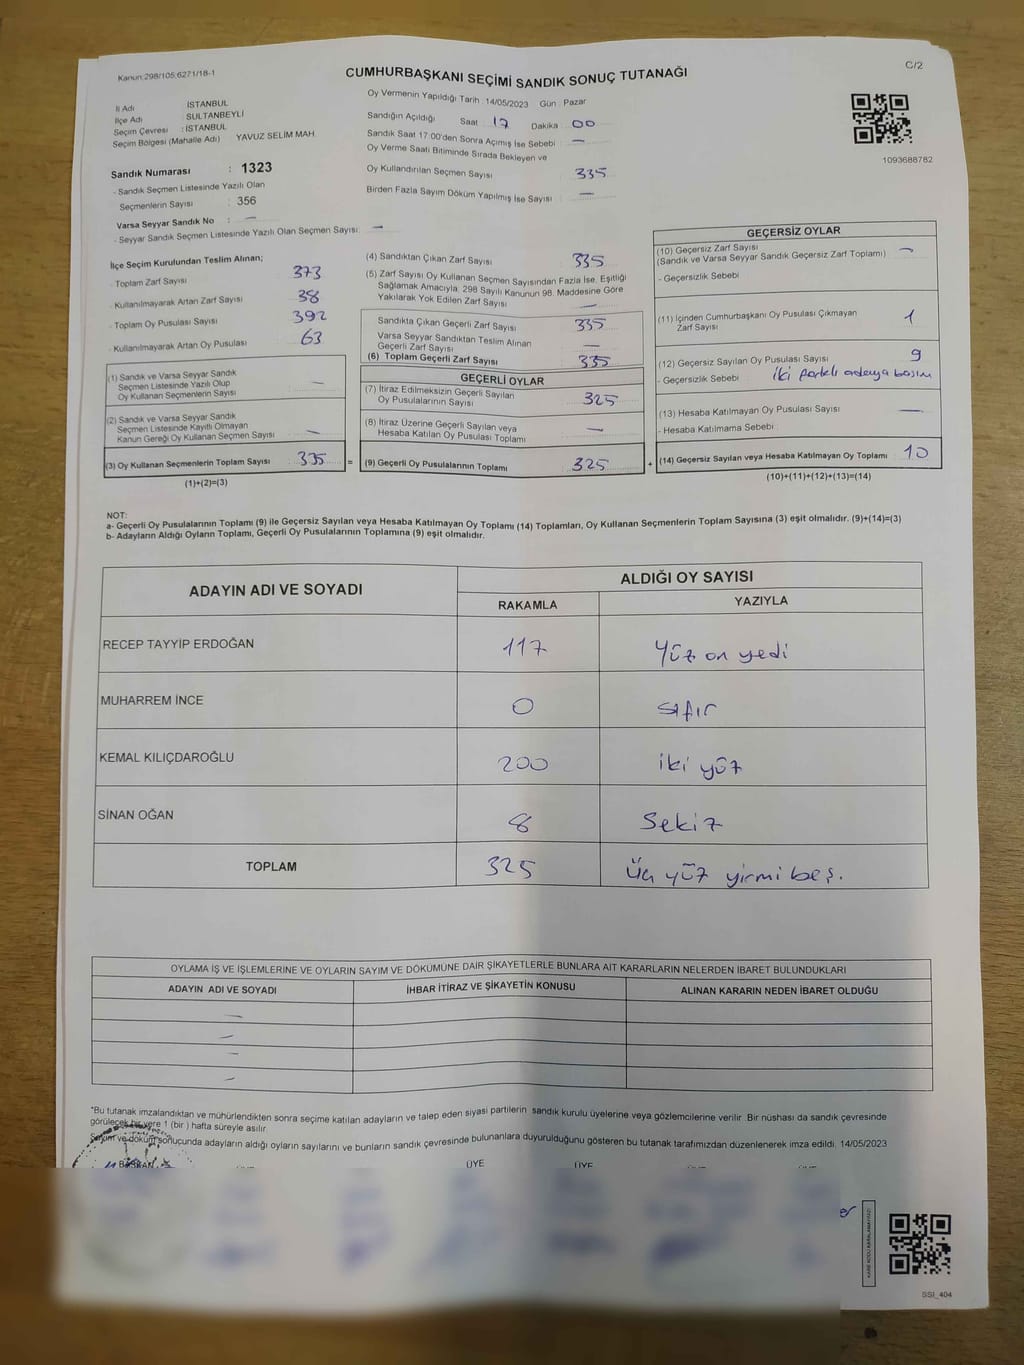 Kanun:298/105;6271/18-1
CUMHURBAŞKANI SEÇİMİ SANDIK SONUÇ TUTANAĞI
C/2
İl Adı : İSTANBUL
İlçe Adı : SULTANBEYLİ
Seçim Çevresi : İSTANBUL
Seçim Bölgesi (Mahalle Adı) YAVUZ SELİM MAH.
Sandık Numarası : 1323
- Sandık Seçmen Listesinde Yazılı Olan
Seçmenlerin Sayısı : 356
Varsa Seyyar Sandık No : —
- Seyyar Sandık Seçmen Listesinde Yazılı Olan Seçmen Sayısı: —
Oy Vermenin Yapıldığı Tarih : 14/05/2023 Gün : Pazar
Sandığın Açıldığı Saat 17 Dakika 00
Sandık Saat 17:00'den Sonra Açımış İse Sebebi —
Oy Verme Saati Bitiminde Sırada Bekleyen ve
Oy Kullandırılan Seçmen Sayısı 335
Birden Fazla Sayım Döküm Yapılmış İse Sayısı —
1093688782
İlçe Seçim Kurulundan Teslim Alınan;
- Toplam Zarf Sayısı 373
- Kullanılmayarak Artan Zarf Sayısı 38
- Toplam Oy Pusulası Sayısı 392
- Kullanılmayarak Artan Oy Pusulası 63
(1) Sandık ve Varsa Seyyar Sandık
Seçmen Listesinde Yazılı Olup
Oy Kullanan Seçmenlerin Sayısı —
(2) Sandık ve Varsa Seyyar Sandık
Seçmen Listesinde Kayıtlı Olmayan
Kanun Gereği Oy Kullanan Seçmen Sayısı —
(3) Oy Kullanan Seçmenlerin Toplam Sayısı 335 =
(1)+(2)=(3)
(4) Sandıktan Çıkan Zarf Sayısı 335
(5) Zarf Sayısı Oy Kullanan Seçmen Sayısından Fazla İse, Eşitliği
Sağlamak Amacıyla, 298 Sayılı Kanunun 98. Maddesine Göre
Yakılarak Yok Edilen Zarf Sayısı —
Sandıkta Çıkan Geçerli Zarf Sayısı 335
Varsa Seyyar Sandıktan Teslim Alınan
Geçerli Zarf Sayısı —
(6) Toplam Geçerli Zarf Sayısı 335
GEÇERLİ OYLAR
(7) İtiraz Edilmeksizin Geçerli Sayılan
Oy Pusulalarının Sayısı 325
(8) İtiraz Üzerine Geçerli Sayılan veya
Hesaba Katılan Oy Pusulaları Toplamı —
(9) Geçerli Oy Pusulalarının Toplamı 325 +
GEÇERSİZ OYLAR
(10) Geçersiz Zarf Sayısı —
(Sandık ve Varsa Seyyar Sandık Geçersiz Zarf Toplamı)
- Geçersizlik Sebebi
(11) İçinden Cumhurbaşkanı Oy Pusulası Çıkmayan
Zarf Sayısı 1
(12) Geçersiz Sayılan Oy Pusulası Sayısı 9
- Geçersizlik Sebebi iki farklı adaya basım
(13) Hesaba Katılmayan Oy Pusulası Sayısı —
- Hesaba Katılmama Sebebi
(14) Geçersiz Sayılan veya Hesaba Katılmayan Oy Toplamı 10
(10)+(11)+(12)+(13)=(14)
NOT:
a- Geçerli Oy Pusulalarının Toplamı (9) ile Geçersiz Sayılan veya Hesaba Katılmayan Oy Toplamı (14) Toplamları, Oy Kullanan Seçmenlerin Toplam Sayısına (3) eşit olmalıdır. (9)+(14)=(3)
b- Adayların Aldığı Oyların Toplamı, Geçerli Oy Pusulalarının Toplamına (9) eşit olmalıdır.
ADAYIN ADI VE SOYADI
ALDIĞI OY SAYISI
RAKAMLA YAZIYLA
RECEP TAYYİP ERDOĞAN 117 Yüz on yedi
MUHARREM İNCE 0 sıfır
KEMAL KILIÇDAROĞLU 200 iki yüz
SİNAN OĞAN 8 Sekiz
TOPLAM 325 Üç yüz yirmi beş.
OYLAMA İŞ VE İŞLEMLERİNE VE OYLARIN SAYIM VE DÖKÜMÜNE DAİR ŞİKAYETLERLE BUNLARA AİT KARARLARIN NELERDEN İBARET BULUNDUKLARI
ADAYIN ADI VE SOYADI İHBAR İTİRAZ VE ŞİKAYETİN KONUSU ALINAN KARARIN NEDEN İBARET OLDUĞU
—
—
—
—
"Bu tutanak imzalandıktan ve mühürlendikten sonra seçime katılan adayların ve talep eden siyasi partilerin sandık kurulu üyelerine veya gözlemcilerine verilir. Bir nüshası da sandık çevresinde
görülecek bir yere 1 (bir) hafta süreyle asılır.
Sayım ve döküm sonucunda adayların aldığı oyların sayılarını ve bunların sandık çevresinde bulunanlara duyurulduğunu gösteren bu tutanak tarafımızdan düzenlenerek imza edildi. 14/05/2023
BAŞKAN ÜYE ÜYE
SSI_404